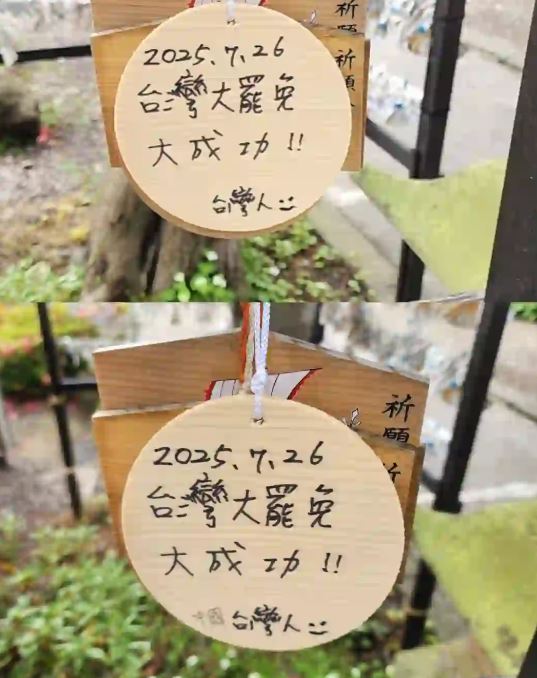 祈
願
祈
願
2025.7.26
台灣大罷免
大成功!!
台灣人
祈
願
祈
2025.7.26
台灣大罷免
大成功!!
中國台灣人